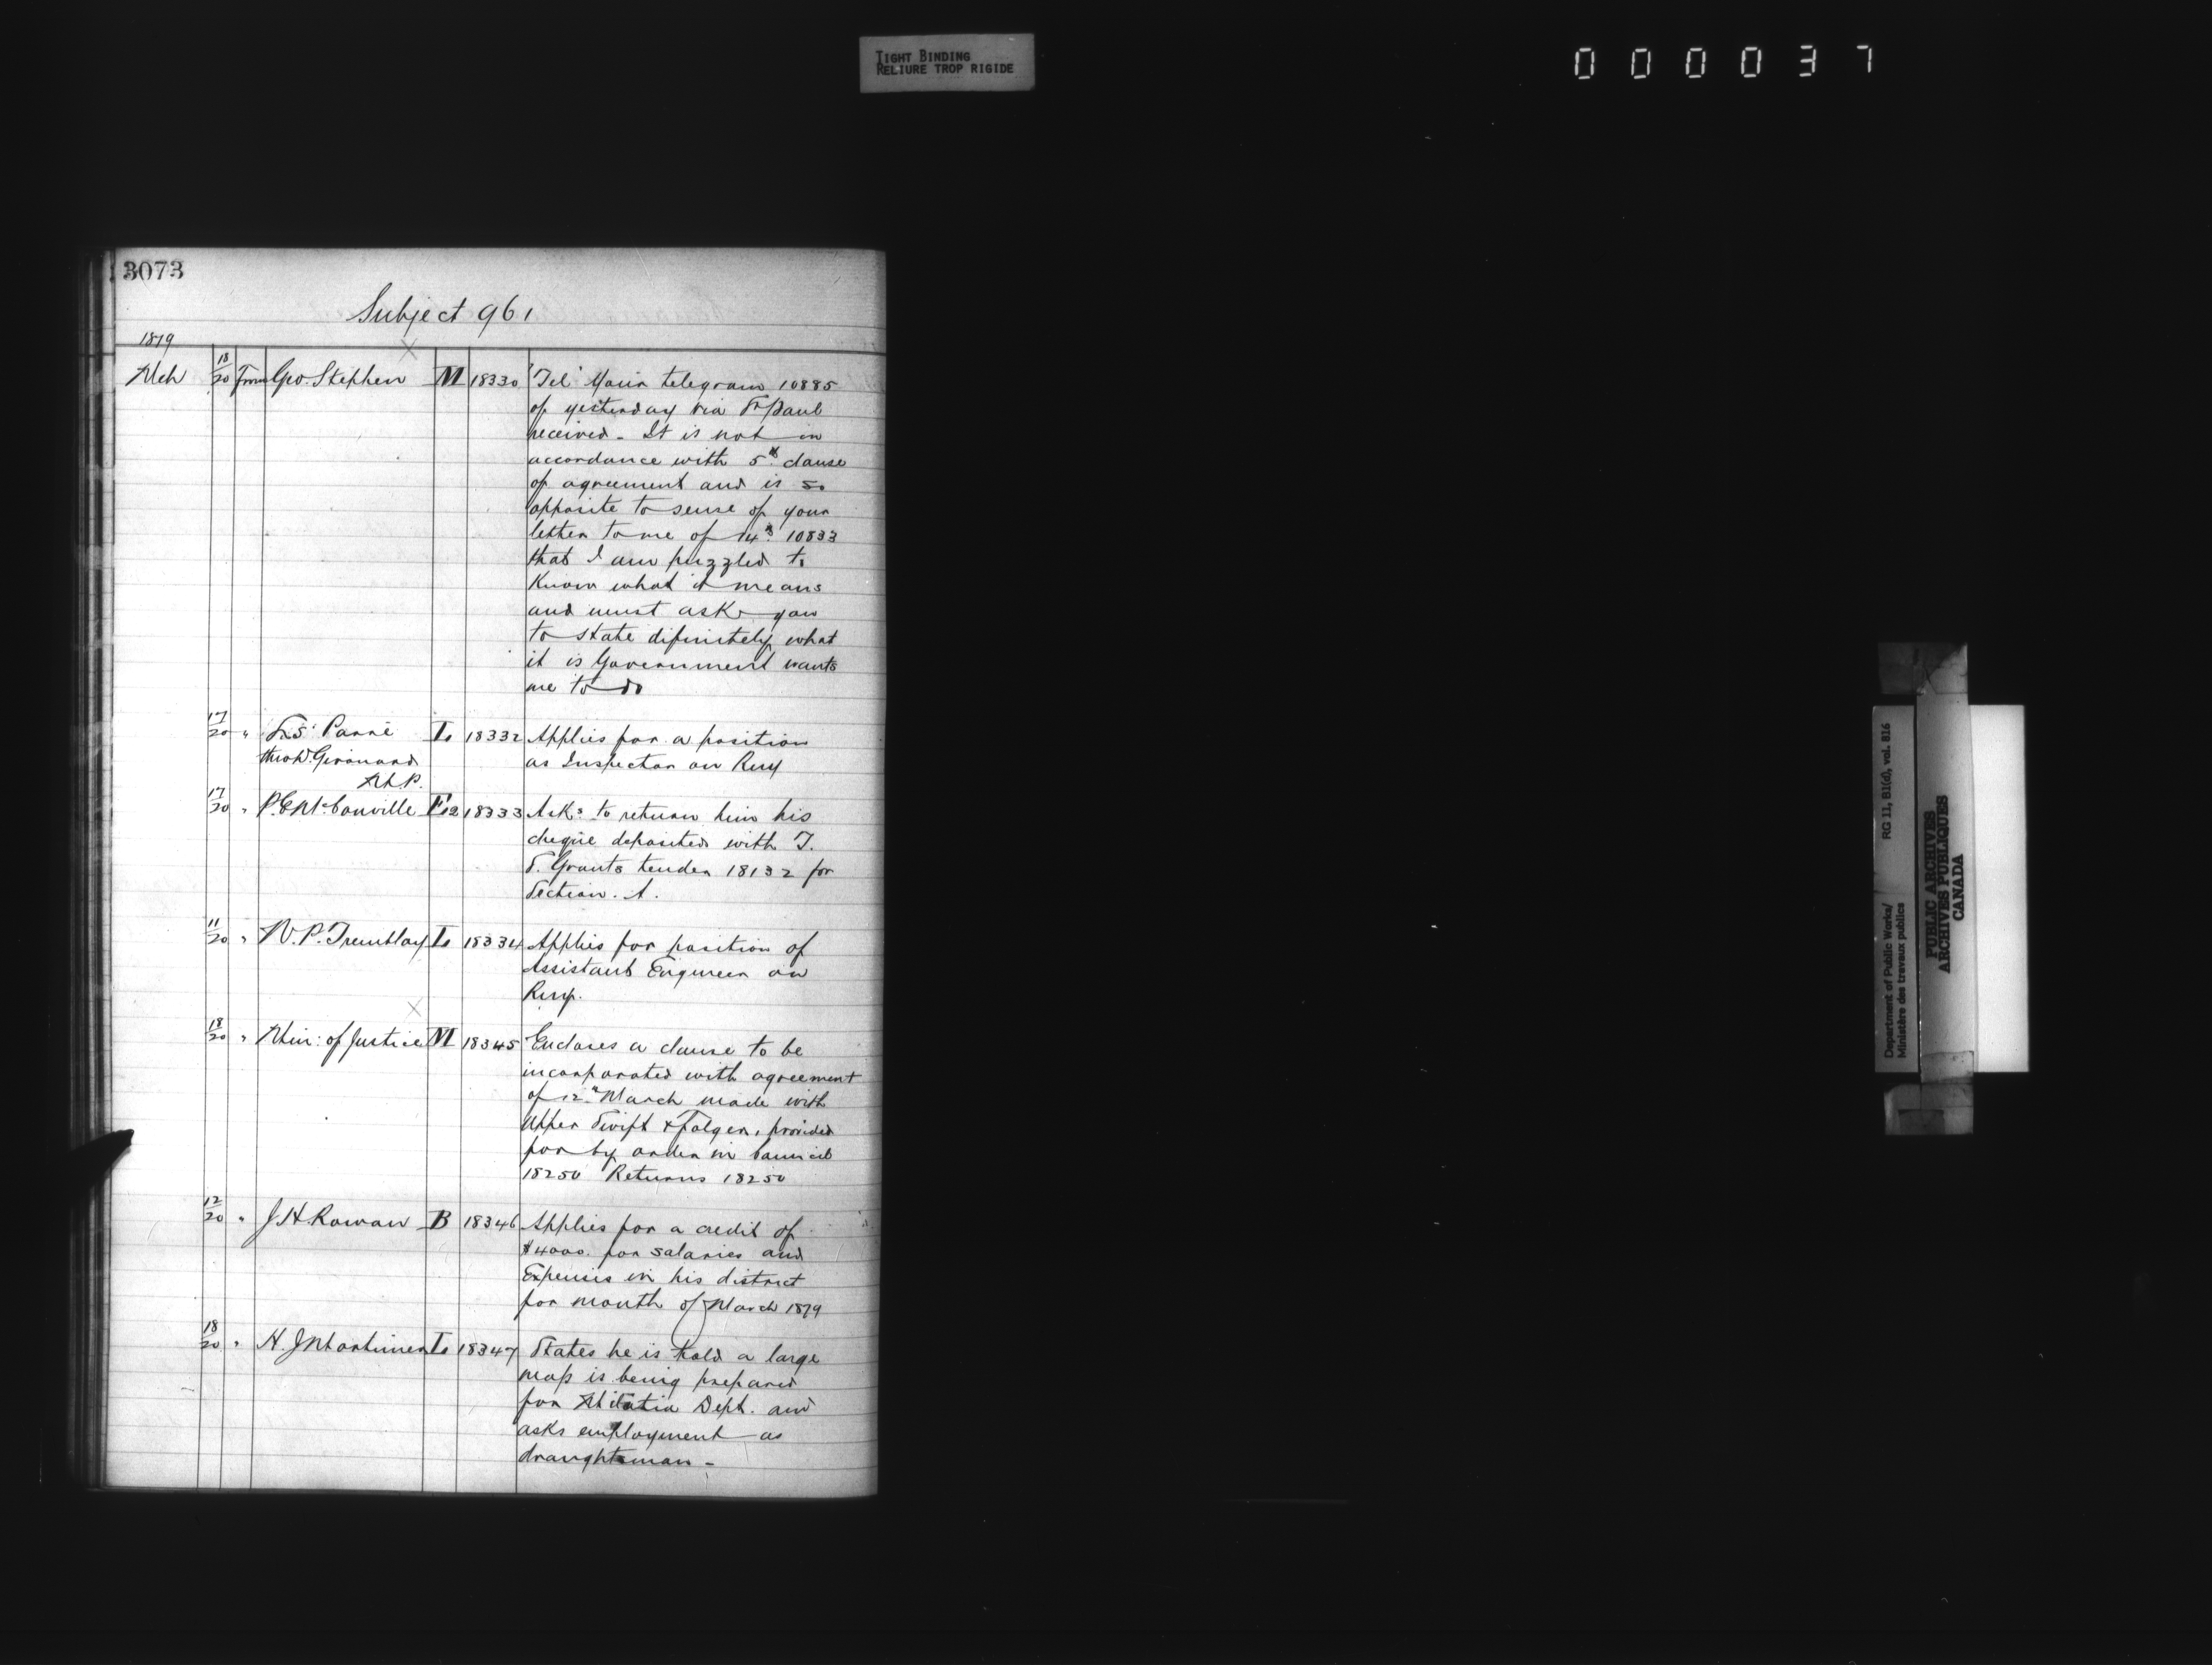 TIGHT BINDING
RELIURE TROP RIGIDE
000037
3073
Subject 961
1879
Mch 18/20 From Geo. Stephen M 18330 "Tel" Your telegram 10885
of yesterday via St Paul
received - It is not in
accordance with 5th clause
of agreement and is so
opposite to sense of your
letter to me of 14th 10833
that I am puzzled to
Know what it means
and must ask you
to state difinitely what
it is Government wants
me to do
17/20 " Ls. Parré I. 18332 Applies for a position
thro D. Girouard as Inspector on Rwy
M.P.
17/20 " P.E. McConville F.12 18333 Asks to return him his
cheque deposited with T.
S. Grants tender 18132 for
Section. A.
11/20 " N.P. Tremblay I. 18334 Applies for position of
Assistant Engineer on
Rwy.
18/20 " Min: of Justice M 18345 Encloses a clause to be
incorporated with agreement
of 12th March made with
Upper Swift & Folger, provided
for by order in Council
18250 Returns 18250
12/20 " J H. Rowan B 18346 Applies for a credit of
$4000. for salaries and
Expenses in his district
for month of March 1879
18/20 " H. J Mortimer I. 18347 States he is told a large
map is being prepared
for Militia Dept. and
asks employment as
draughtsman -
Department of Public Works/ RG 11, B1(d), vol. 816
Ministère des travaux publics
PUBLIC ARCHIVES
ARCHIVES PUBLIQUES
CANADA